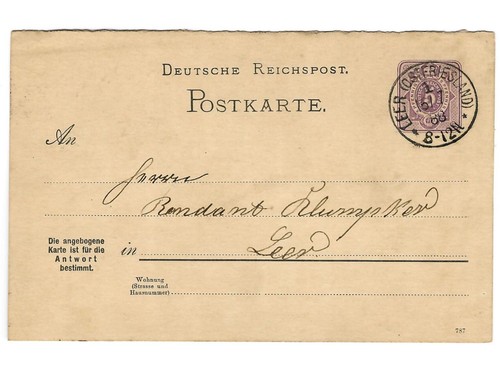 DEUTSCHE REICHSPOST.
POSTKARTE.
LEER (OSTFRIESLAND)
8-12N
5
An
Herrn
Rendant Klumpker
Die angebogene
Karte ist für die
Antwort
bestimmt.
in Leer.
Wohnung
(Strasse und
Hausnummer)
787